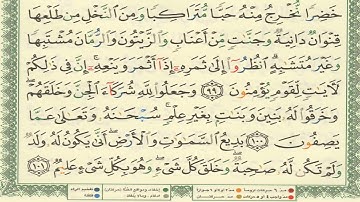 خَضِرًا نُّخْرِجُ مِنْهُ حَبًّا مُّتَرَاكِبًا وَمِنَ ٱلنَّخْلِ مِن طَلْعِهَا
قِنْوَانٌ دَانِيَةٌ وَجَنَّٰتٍ مِّنْ أَعْنَابٍ وَٱلزَّيْتُونَ وَٱلرُّمَّانَ مُشْتَبِهًا
وَغَيْرَ مُتَشَٰبِهٍ ٱنظُرُوٓا۟ إِلَىٰ ثَمَرِهِۦٓ إِذَآ أَثْمَرَ وَيَنْعِهِۦٓ إِنَّ فِى ذَٰلِكُمْ
لَءَايَٰتٍ لِّقَوْمٍ يُؤْمِنُونَ ٩٩ وَجَعَلُوا۟ لِلَّهِ شُرَكَآءَ ٱلْجِنَّ وَخَلَقَهُمْ
وَخَرَقُوا۟ لَهُۥ بَنِينَ وَبَنَٰتٍۭ بِغَيْرِ عِلْمٍ سُبْحَٰنَهُۥ وَتَعَٰلَىٰ عَمَّا
يَصِفُونَ ١٠٠ بَدِيعُ ٱلسَّمَٰوَٰتِ وَٱلْأَرْضِ أَنَّىٰ يَكُونُ لَهُۥ وَلَدٌ
وَلَمْ تَكُن لَّهُۥ صَٰحِبَةٌ وَخَلَقَ كُلَّ شَىْءٍ وَهُوَ بِكُلِّ شَىْءٍ عَلِيمٌ ١٠١